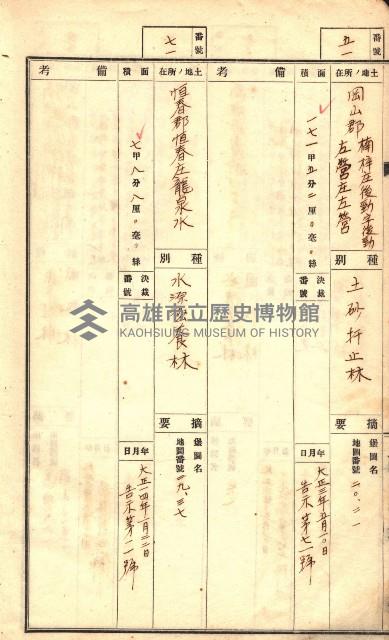 番號
五一
土地ノ所在
岡山郡楠梓庄後勁字後勁
左營庄左營
種別
土砂扞止林
摘要
堡圖名
地圖番號二〇、二一
面積
一七一甲五分二厘〇毫〇絲
決裁番號
年月日
大正三年五月一〇日
告示第七一號
備考
番號
七一
土地ノ所在
恒春郡恒春庄龍泉水
種別
水源涵養林
摘要
堡圖名
地圖番號二九、三七
面積
七甲八分八厘〇毫〇絲
決裁番號
年月日
大正一四年一月二三日
告示第一二號
備考
高雄市立歷史博物館
KAOHSIUNG MUSEUM OF HISTORY